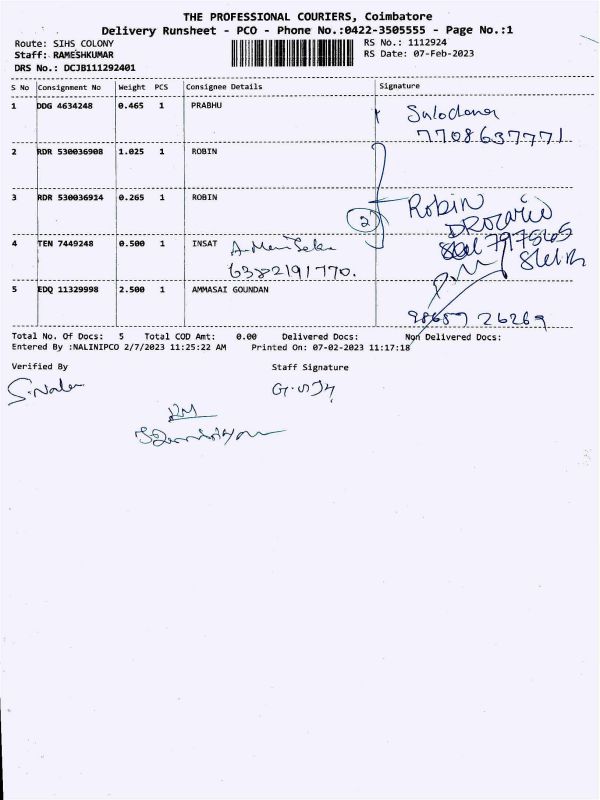 THE PROFESSIONAL COURIERS, Coimbatore
Delivery Runsheet - PCO - Phone No.:0422-3505555 - Page No.:1
Route: SIHS COLONY RS No.: 1112924
Staff: RAMESHKUMAR RS Date: 07-Feb-2023
DRS No.: DCJB111292401
S No Consignment No Weight PCS Consignee Details Signature
1 DDG 4634248 0.465 1 PRABHU
7708637771
2 RDR 530036908 1.025 1 ROBIN
3 RDR 530036914 0.265 1 ROBIN Robin
2 DRozario
4 TEN 7449248 0.500 1 INSAT
6382191770.
5 EDQ 11329998 2.500 1 AMMASAI GOUNDAN
98659 26269
Total No. Of Docs: 5 Total COD Amt: 0.00 Delivered Docs: Non Delivered Docs:
Entered By :NALINIPCO 2/7/2023 11:25:22 AM Printed On: 07-02-2023 11:17:18
Verified By Staff Signature